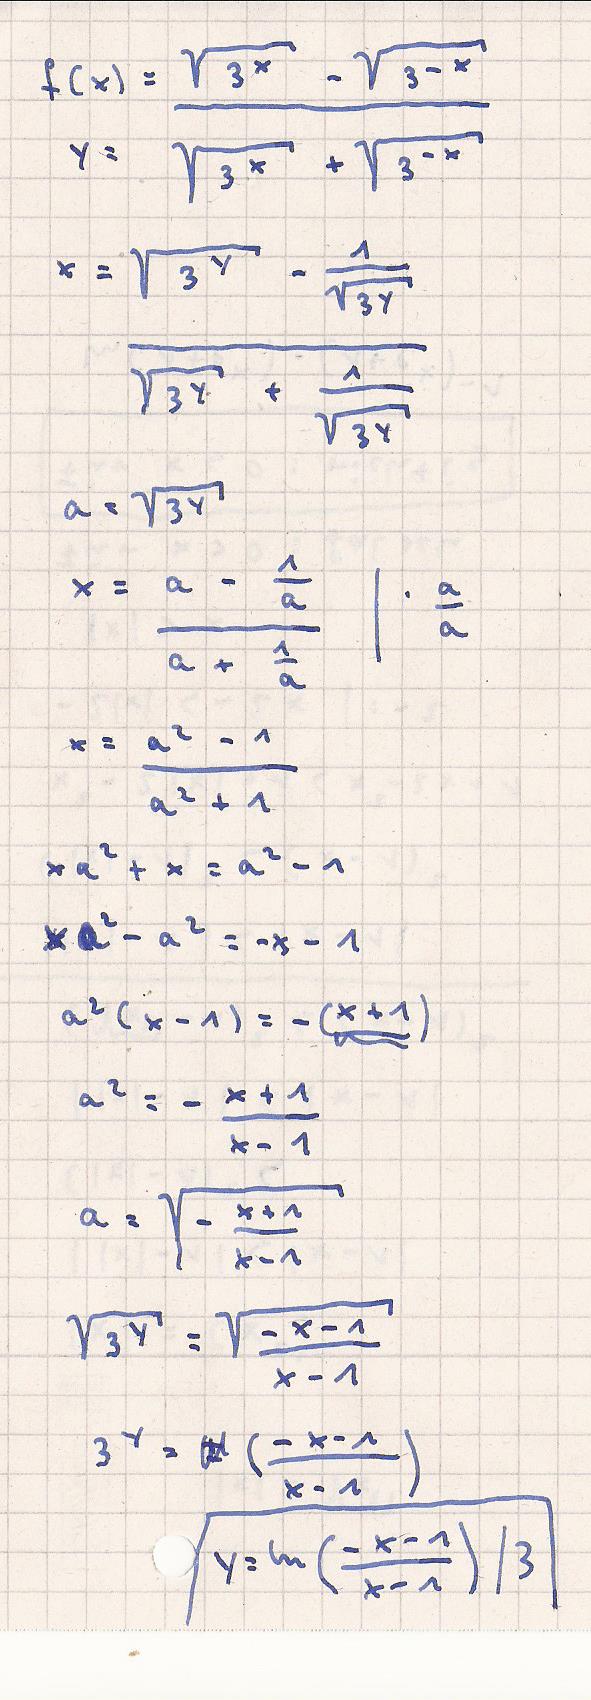 f(x) = (√(3^x) - √(3^-x))
y = (√(3^x) + √(3^-x))
x = √(3^y) - 1/√(3^y)
√(3^y) + 1/√(3^y)
a = √(3^y)
x = (a - 1/a) / (a + 1/a) | · a/a
x = (a² - 1) / (a² + 1)
xa² + x = a² - 1
xa² - a² = -x - 1
a²(x - 1) = -(x + 1)
a² = - (x + 1)/(x - 1)
a = √(- (x+1)/(x-1))
√(3^y) = √((-x-1)/(x-1))
3^y = ((-x-1)/(x-1))
y = ln((-x-1)/(x-1)) / 3